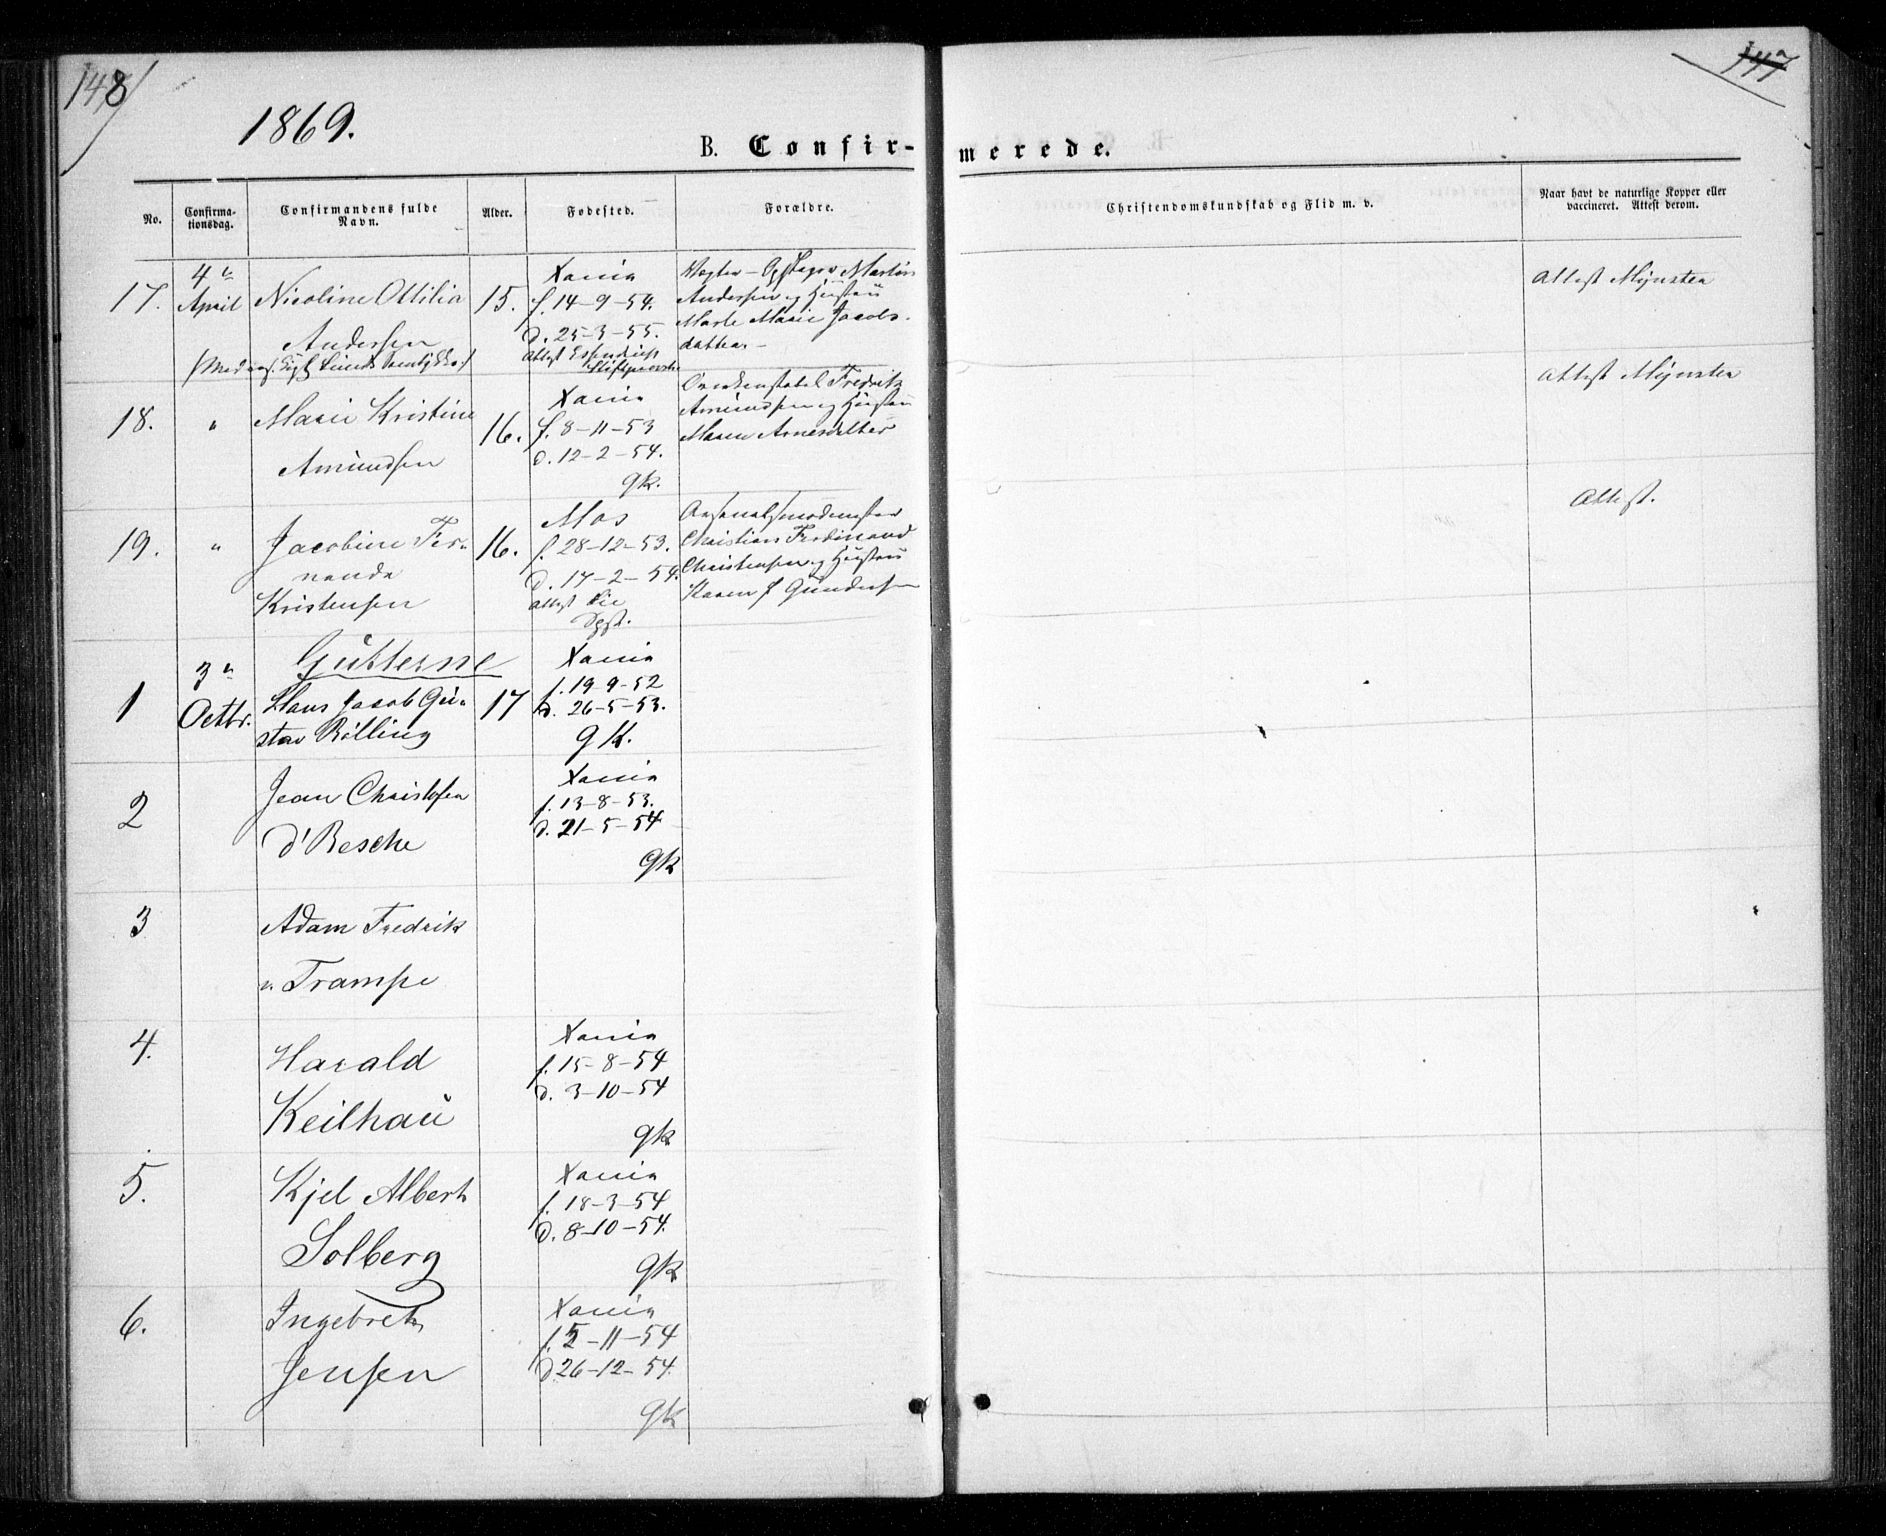 148
147
1869.
B. Confir-
merede.
No.
Confirma-
tionsdag.
Confirmandens fulde
Navn.
Alder.
Fødested.
Forældre.
Christendomskundskab og Flid m. v.
Naar havt de naturlige Kopper eller
vaccineret. Attest derom.
17.
4
April
Nicoline Ottilia
Andersen
15.
Xania
f. 14-9-54.
d. 25-3-55.
Attest
Martin
Andersen og Hustru
Marte Marie Jacobs-
datter
Attest Mynster
18.
"
Marie Kristine
Amundsen
16.
Xania
f. 8-11-53
d. 12-2-54.
gk.
Fredrik
Amundsen og Hustru
Maren
Attest Mynster
19.
"
Jacobine Fer-
nanda
Kristensen
16.
Mos
f. 28-12-53.
d. 17-2-54.
attest
Christian Ferdinand
Christensen og Hustru
Karen Gundersen
Attest.
Gutterne
1
3
Octbr.
Hans Jacob Gu-
stav Rølling
17
Xania
f. 19-9-52
d. 26-5-53.
gk.
2
Jean Christofer
d'Besche
Xania
f. 13-8-53.
d. 21-5-54
gk
3
Adam Fredrik
v. Trampe
4.
Harald
Keilhau
Xania
f. 15-8-54
d. 3-10-54
gk
5.
Kjel Albert
Solberg
Xania
f. 18-3-54
d. 8-10-54.
gk
6.
Ingebret
Jensen
Xania
f. 5-11-54
d 26-12-54.
gk